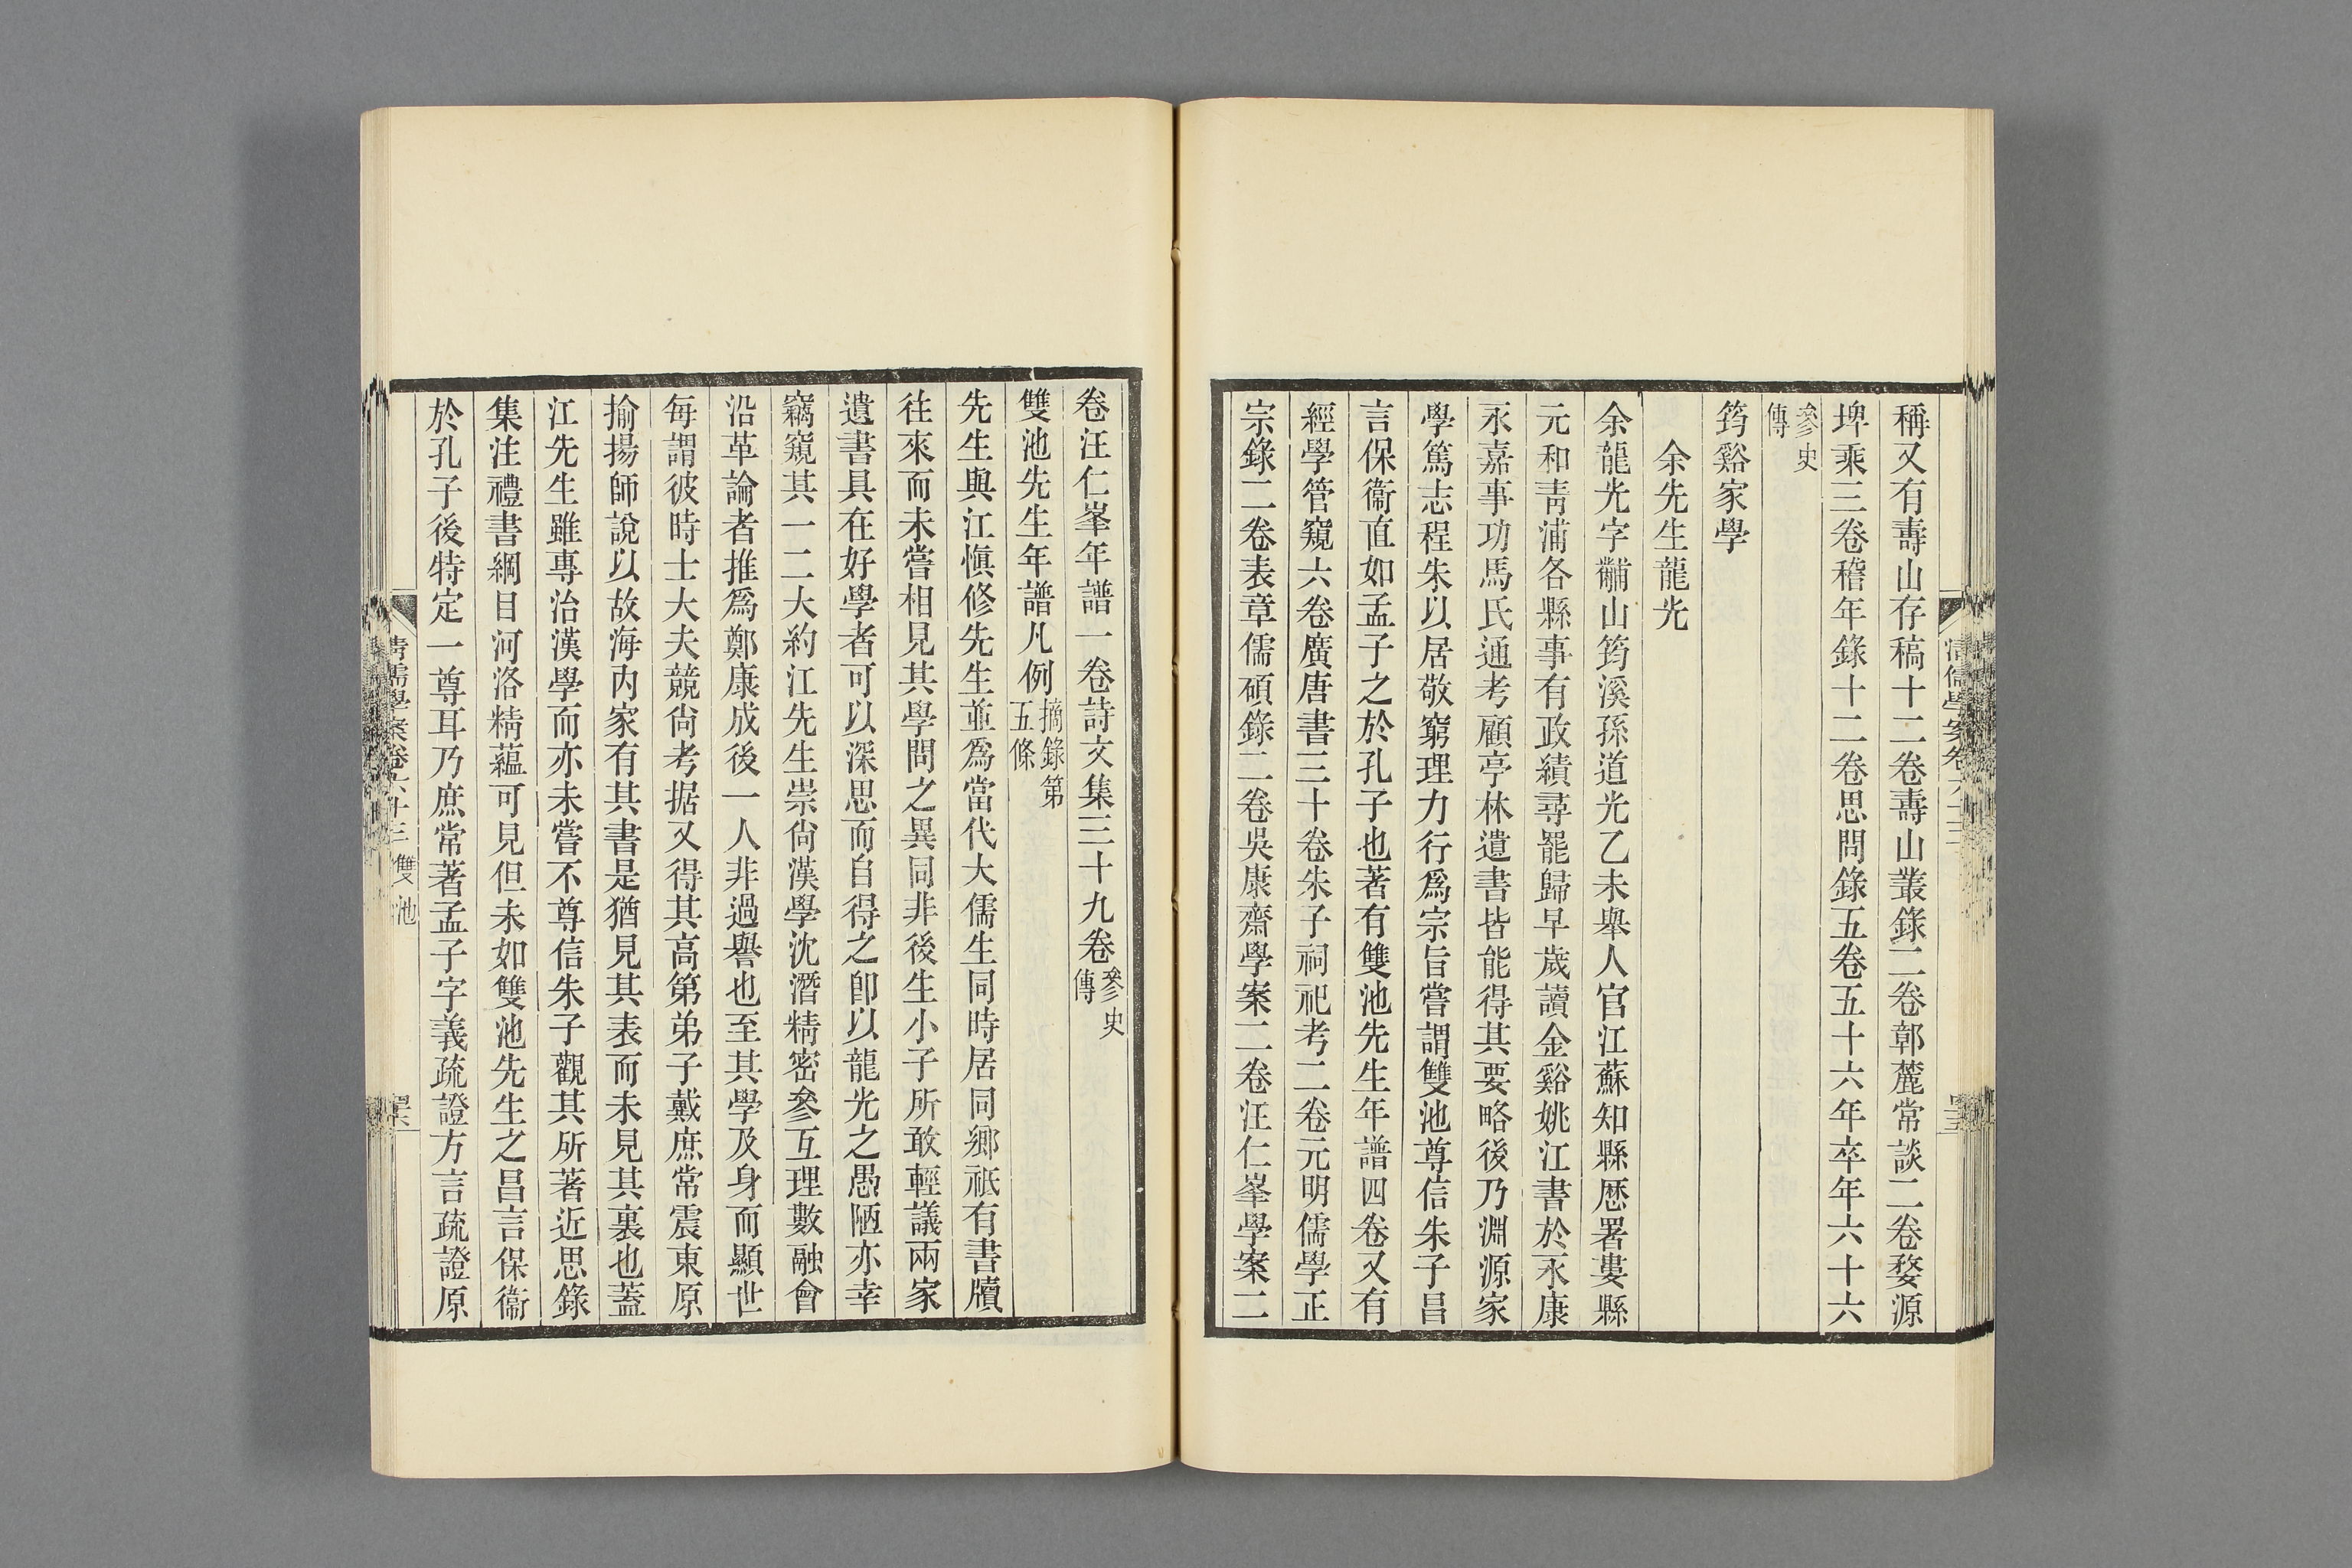 稱又有壽山存稿十二卷壽山叢錄二卷郭麓常談二卷婺源
埤乘三卷稽年錄十二卷思問錄五卷五十六年卒年六十六
參史
傳
筠谿家學
余先生龍光
余龍光字黼山筠溪孫道光乙未舉人官江蘇知縣歷署婁縣
元和靑浦各縣事有政績尋罷歸早歲讀金谿姚江書於永康
永嘉事功馬氏通考顧亭林遺書皆能得其要略後乃淵源家
學篤志程朱以居敬窮理力行爲宗旨嘗謂雙池尊信朱子昌
言保衞直如孟子之於孔子也著有雙池先生年譜四卷又有
經學管窺六卷廣唐書三十卷朱子祠祀考二卷元明儒學正
宗錄二卷表章儒碩錄二卷吳康齋學案二卷汪仁峯學案二
卷汪仁峯年譜一卷詩文集三十九卷參史
傳
雙池先生年譜凡例摘錄第
五條
先生與江愼修先生並爲當代大儒生同時居同鄉祇有書牘
往來而未嘗相見其學問之異同非後生小子所敢輕議兩家
遺書具在好學者可以深思而自得之卽以龍光之愚陋亦幸
竊窺其一二大約江先生崇尙漢學沈潛精密參互理數融會
沿革論者推爲鄭康成後一人非過譽也至其學及身而顯世
每謂彼時士大夫競尙考据又得其高第弟子戴庶常震東原
揄揚師說以故海內家有其書是猶見其表而未見其裏也蓋
江先生雖專治漢學而亦未嘗不尊信朱子觀其所著近思錄
集注禮書綱目河洛精蘊可見但未如雙池先生之昌言保衞
於孔子後特定一尊耳乃庶常著孟子字義疏證方言疏證原
清儒學案卷六十三 雙池